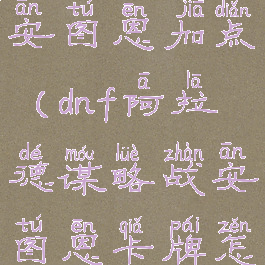 ān tú ēn jiā diǎn
安图恩加点
ā lā
(dnf阿拉
dé móu lüè zhàn ān
德谋略战安
tú ēn qiǎ pái zěn
图恩卡牌怎